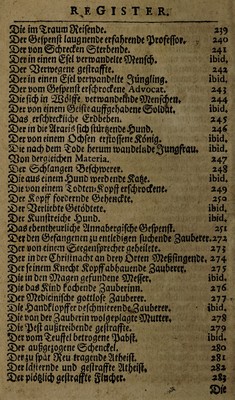 REGISTER.
Die im Traum Reisende. 239
Der Gespenst laugnende erfahrende Professor. 240
Der von Schrecken Sterbende. 241
Der in einen Esel verwandelte Mensch. ibid.
Der Verwegene gestraffte. 242
Der in einen Esel verwandelte Jüngling. ibid.
Der vom Gespenst erschrockene Advocat. 243
Die sich in Wölffe verwandelnde Menschen. 244
Der von einem Geiste auffgehabene Soldat. ibid.
Das erschreckliche Erdbeben. 245
Der in die Atarie sich stürtzende Hund. 246
Der von einem Ochsen erstossene König. ibid.
Die nach dem Tode herum wandelnde Jungfrau. ibid.
Von dergleichen Materia. 247
Der Schlangen Beschwerer. 248
Die aus einem Hund werdende Katze. ibid.
Die von einem Todten-Kopff erschrockene. 249
Der Kopff fordernde Gehenckte. 250
Der Verliebte Getödtete. ibid.
Der Kunstreiche Hund. ibid.
Das ebentheurliche Annabergische Gespenst. 251
Der den Gefangenen zu entledigen suchende Zauberer. 272
Der von einem Seegensprecher geheilete. 273.
Der in der Christnacht an drey Orten Meßsingende. 274
Der seinem Knecht Kopff abhauende Zauberer. 275
Die in den Magen gefundene Messer. ibid.
Die das Kind kochende Zauberinn. 276
Der Medicinische gottlose Zauberer. 277
Die Handklopffer beschmierende Zauberer. ibid.
Die von der Zauberin wolgeplagte Mutter. 278
Die Pest außtreibende gestraffte. 279
Der vom Teuffel betrogene Pabst. ibid.
Der außgezogene Schenckel. 280
Der zu spät Reu tragende Atheist. 281
Der lästernde und gestraffte Atheist. 282
Der plötzlich gestraffte Flucher. 283
Die